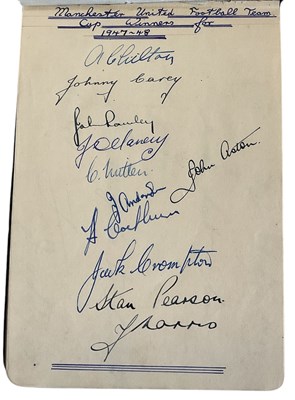 Manchester United Football Team
Cup Winners for
1947-48
A Chilton
Johnny Carey
Jack Rowley
J Delaney
C. Mitten
John Aston.
J Anderson
H Cockburn
Jack Crompton
Stan Pearson
J Morris